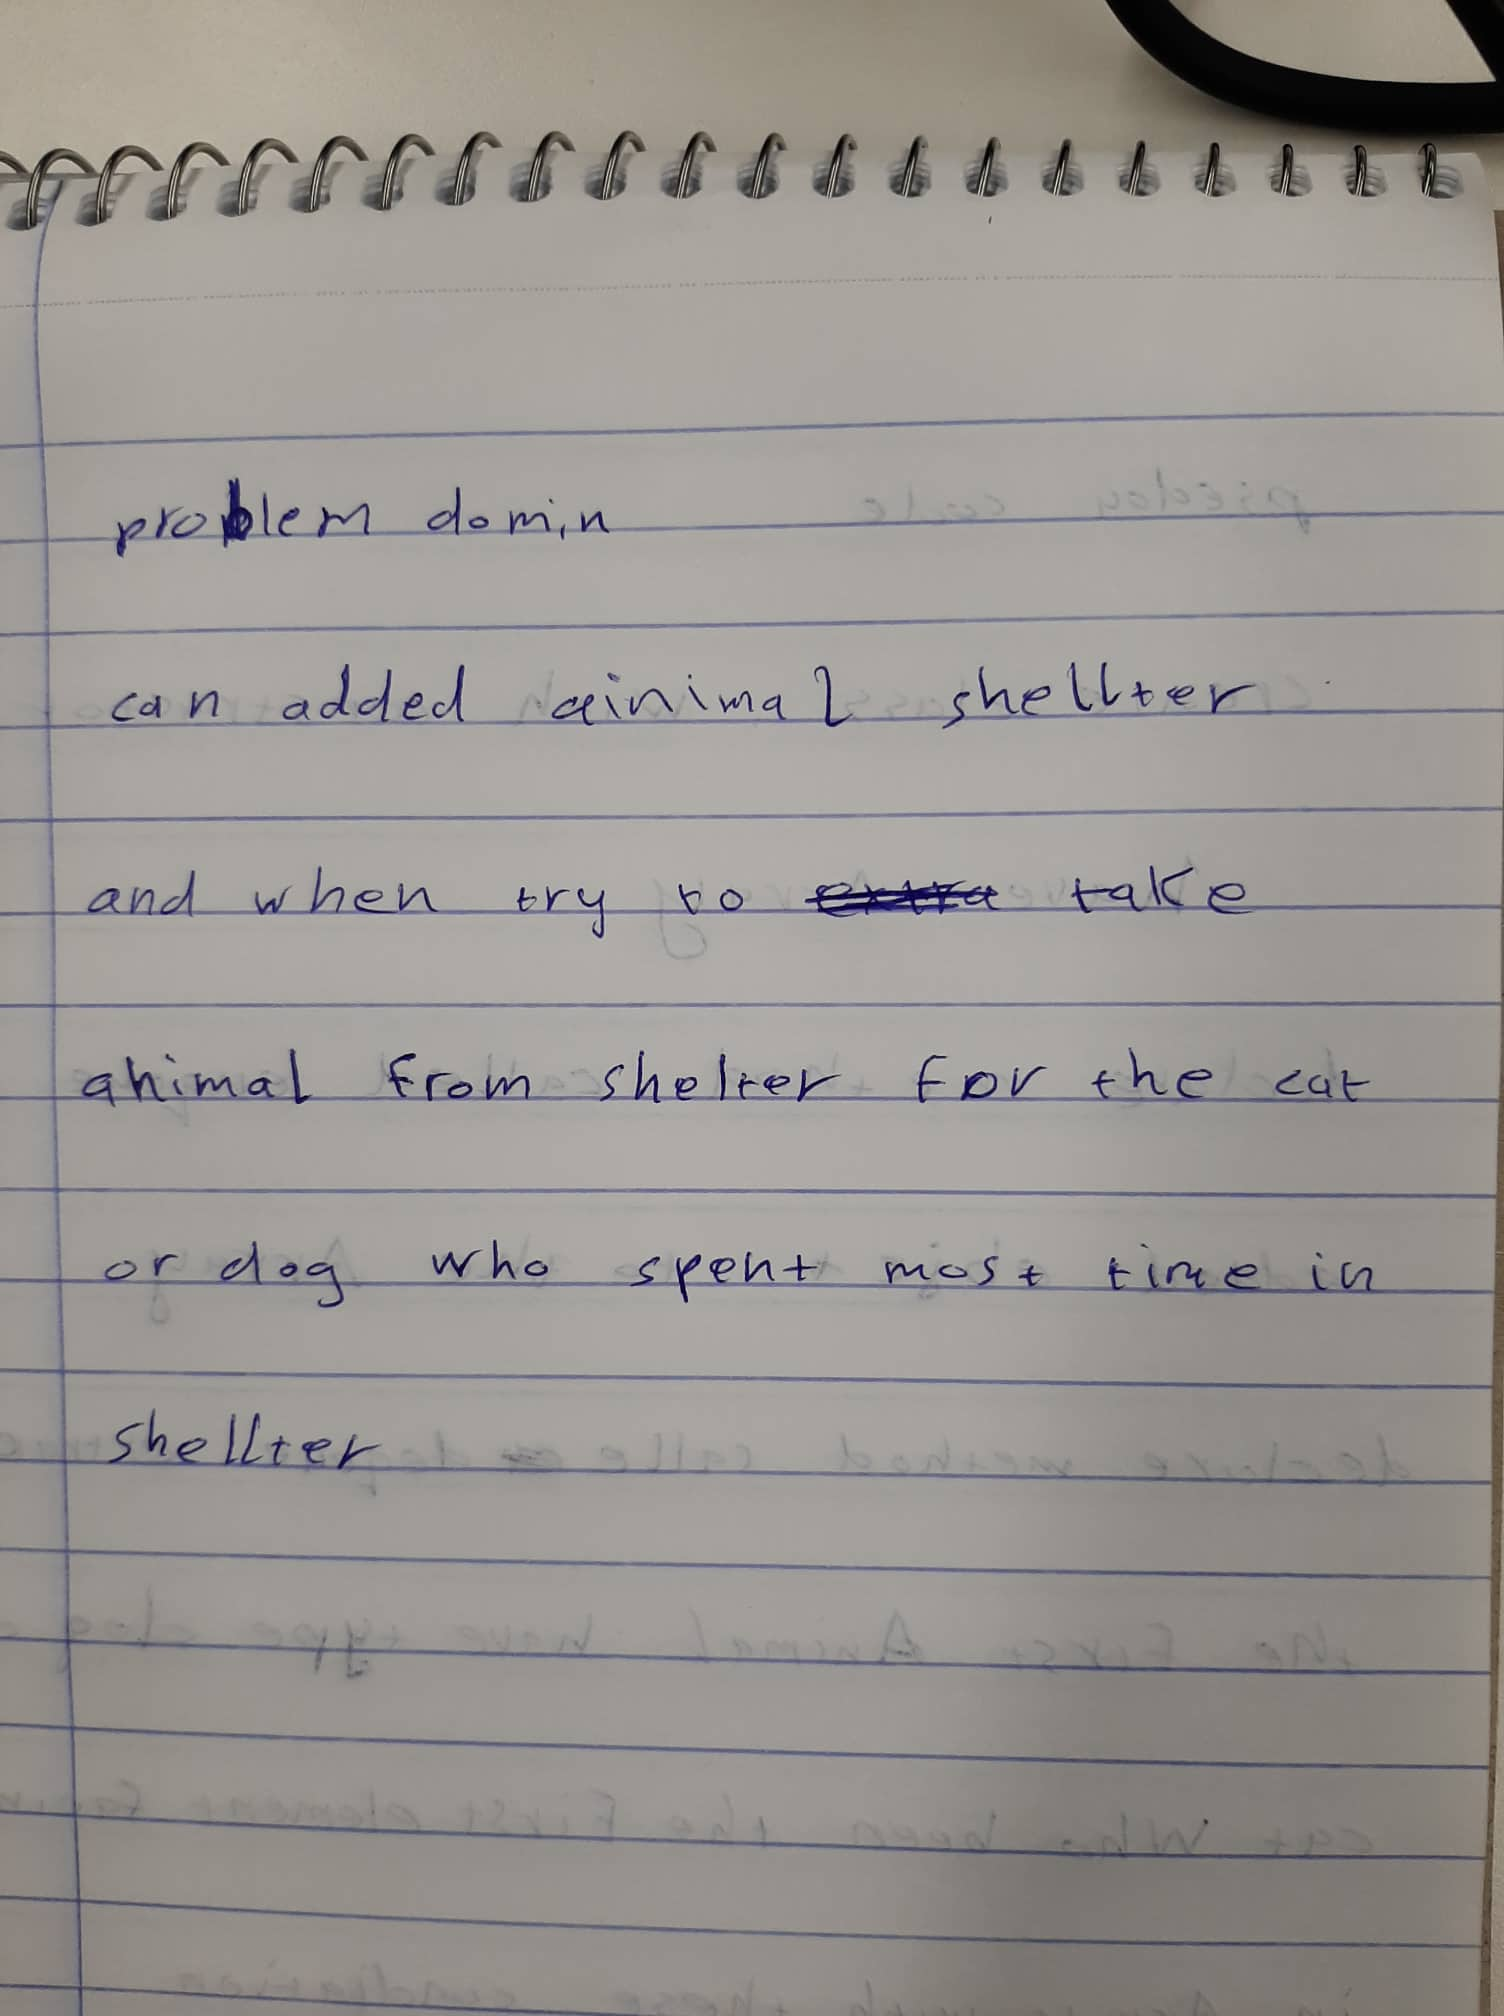 problem domin
can added ainimal shellter
and when try to extra take
animal from shelter For the cat
or dog who spent most time in
shellter